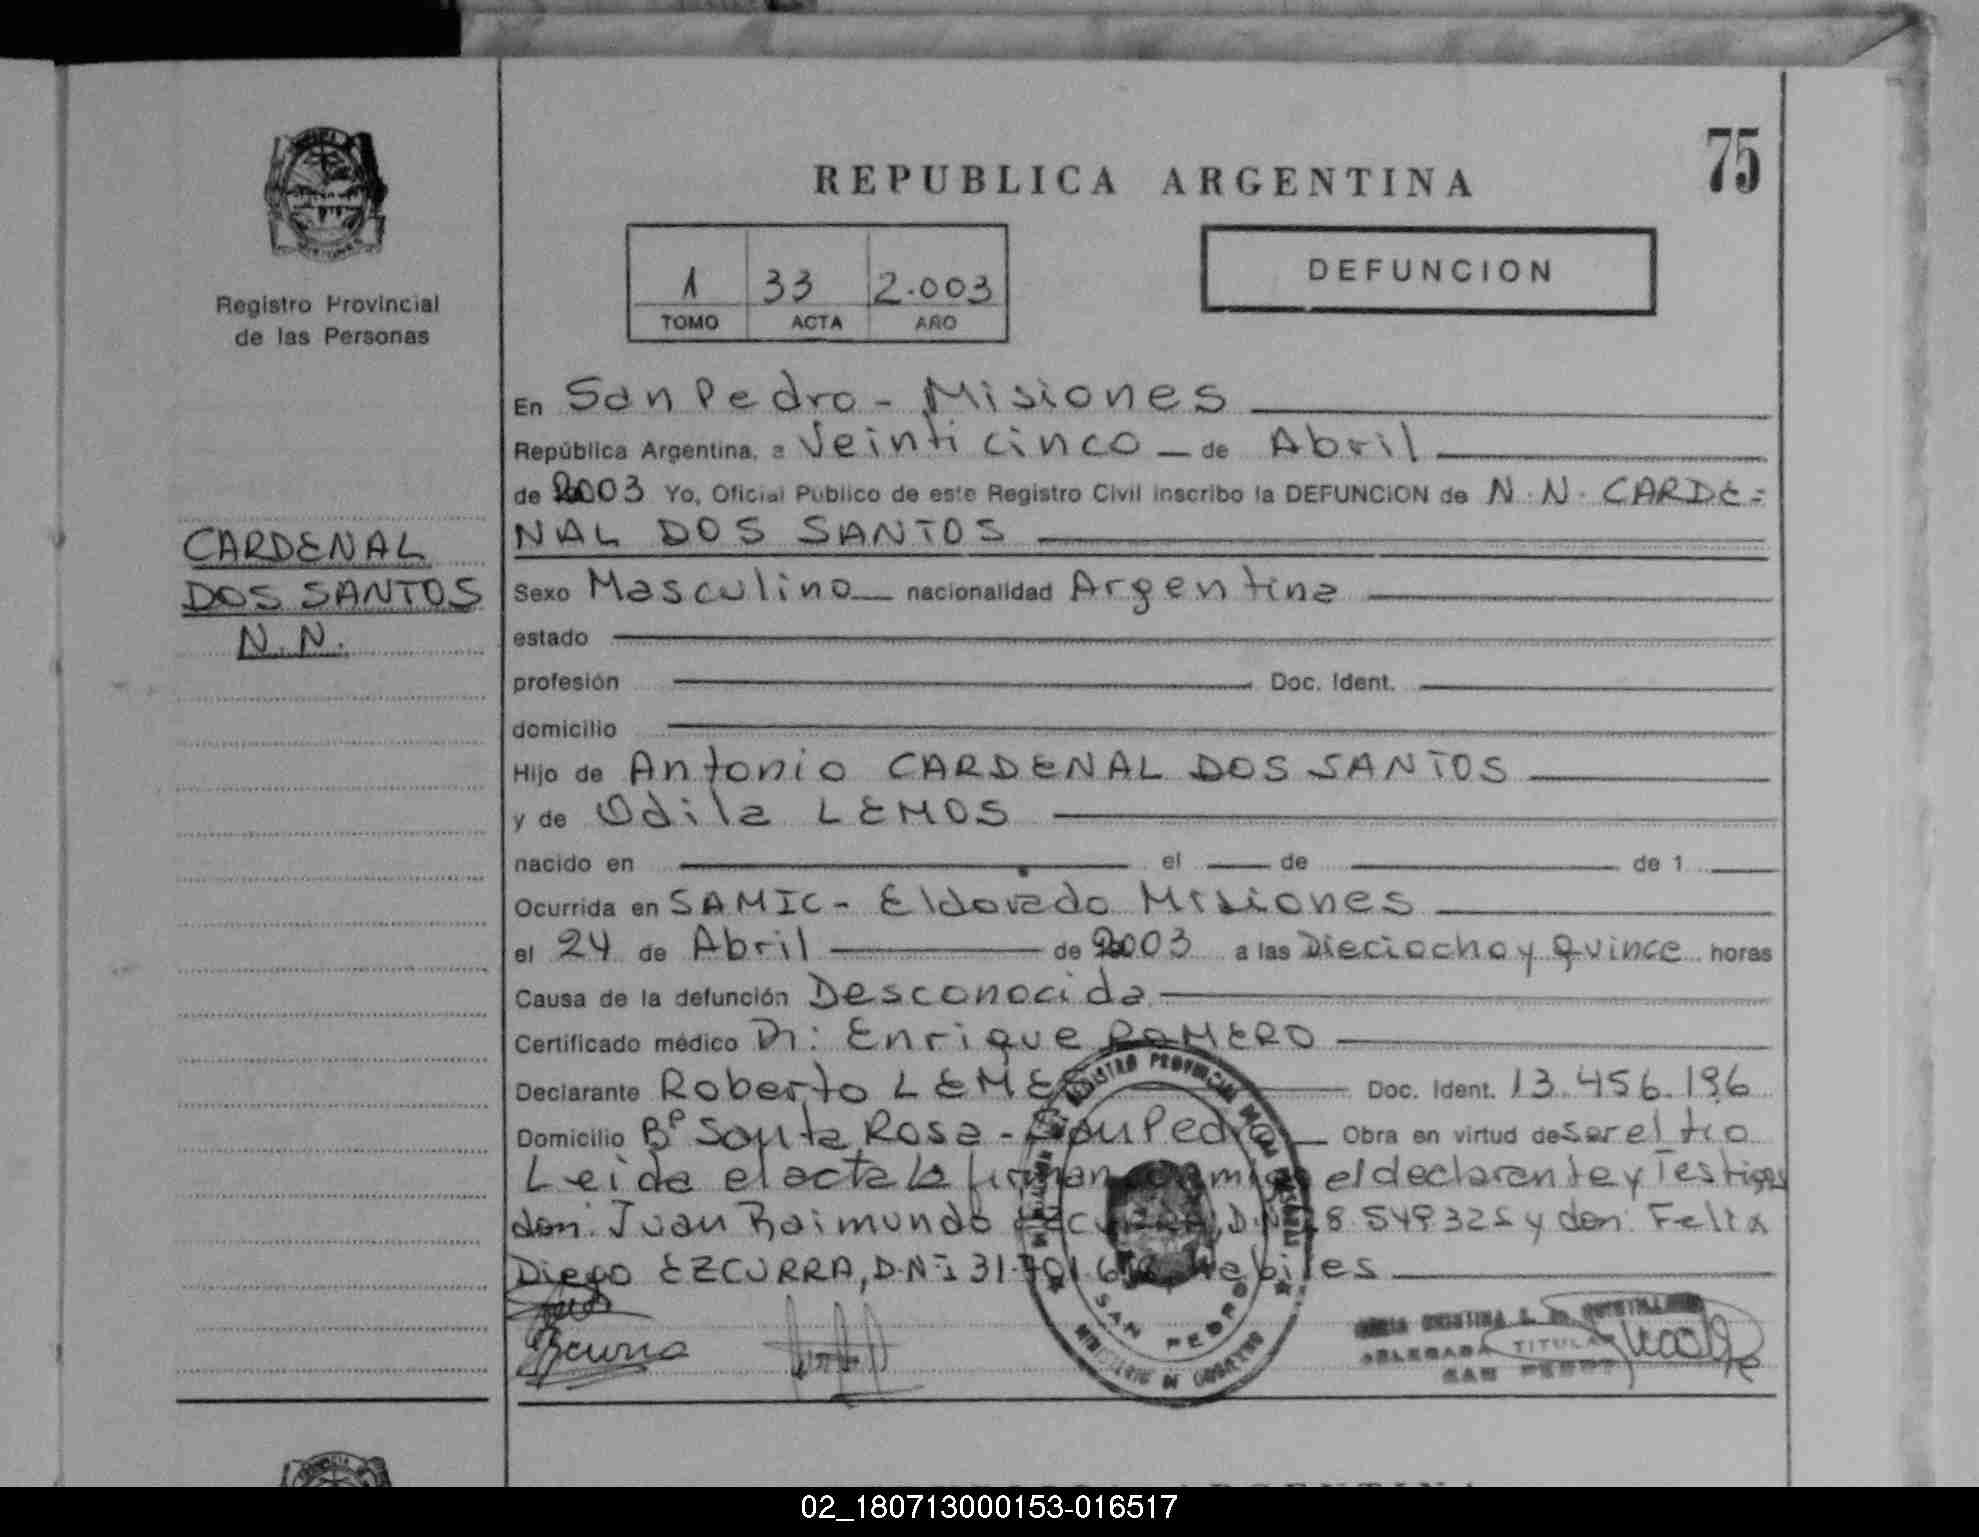 75
REPUBLICA ARGENTINA
1 33 2.003
TOMO ACTA AÑO
DEFUNCION
Registro Provincial
de las Personas
CARDENAL
DOS SANTOS
N.N.
En San Pedro - Misiones
República Argentina, a Veinticinco de Abril
de 2003 Yo, Oficial Público de este Registro Civil inscribo la DEFUNCION de N.N. CARDE=
NAL DOS SANTOS
Sexo Masculino nacionalidad Argentina
estado
profesión Doc. Ident.
domicilio
Hijo de Antonio CARDENAL DOS SANTOS
y de Odila LEMOS
nacido en el de de 1
Ocurrida en SAMIC - Eldorado Misiones
el 24 de Abril de 2003 a las Dieciocho y quince horas
Causa de la defunción Desconocida
Certificado médico Dr: Enrique ROMERO
Declarante Roberto Doc. Ident. 13.456.196
Domicilio Bº Santa Rosa - San Pedro Obra en virtud de ser el tio
Leida el acta la firman conmigo el declarante y Testigos
don: Juan Raimundo y don: Felix
Diego EZCURRA, D.N.I Habiles
REGISTRO PROVINCIAL DE LAS PERSONAS
SAN PEDRO
MINISTERIO DE GOBIERNO
DELEGADA TITULAR
SAN PEDRO
02_180713000153-016517